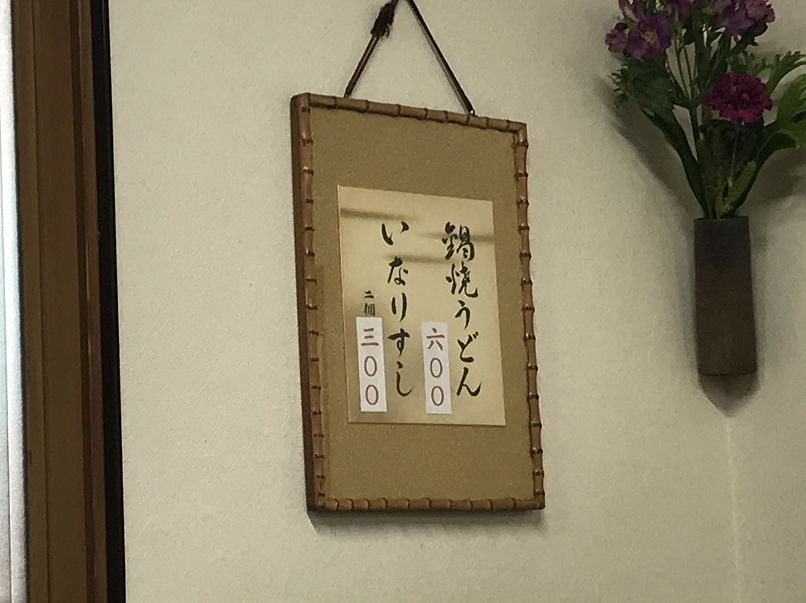 鍋焼うどん
六〇〇
いなりすし
二個
三〇〇